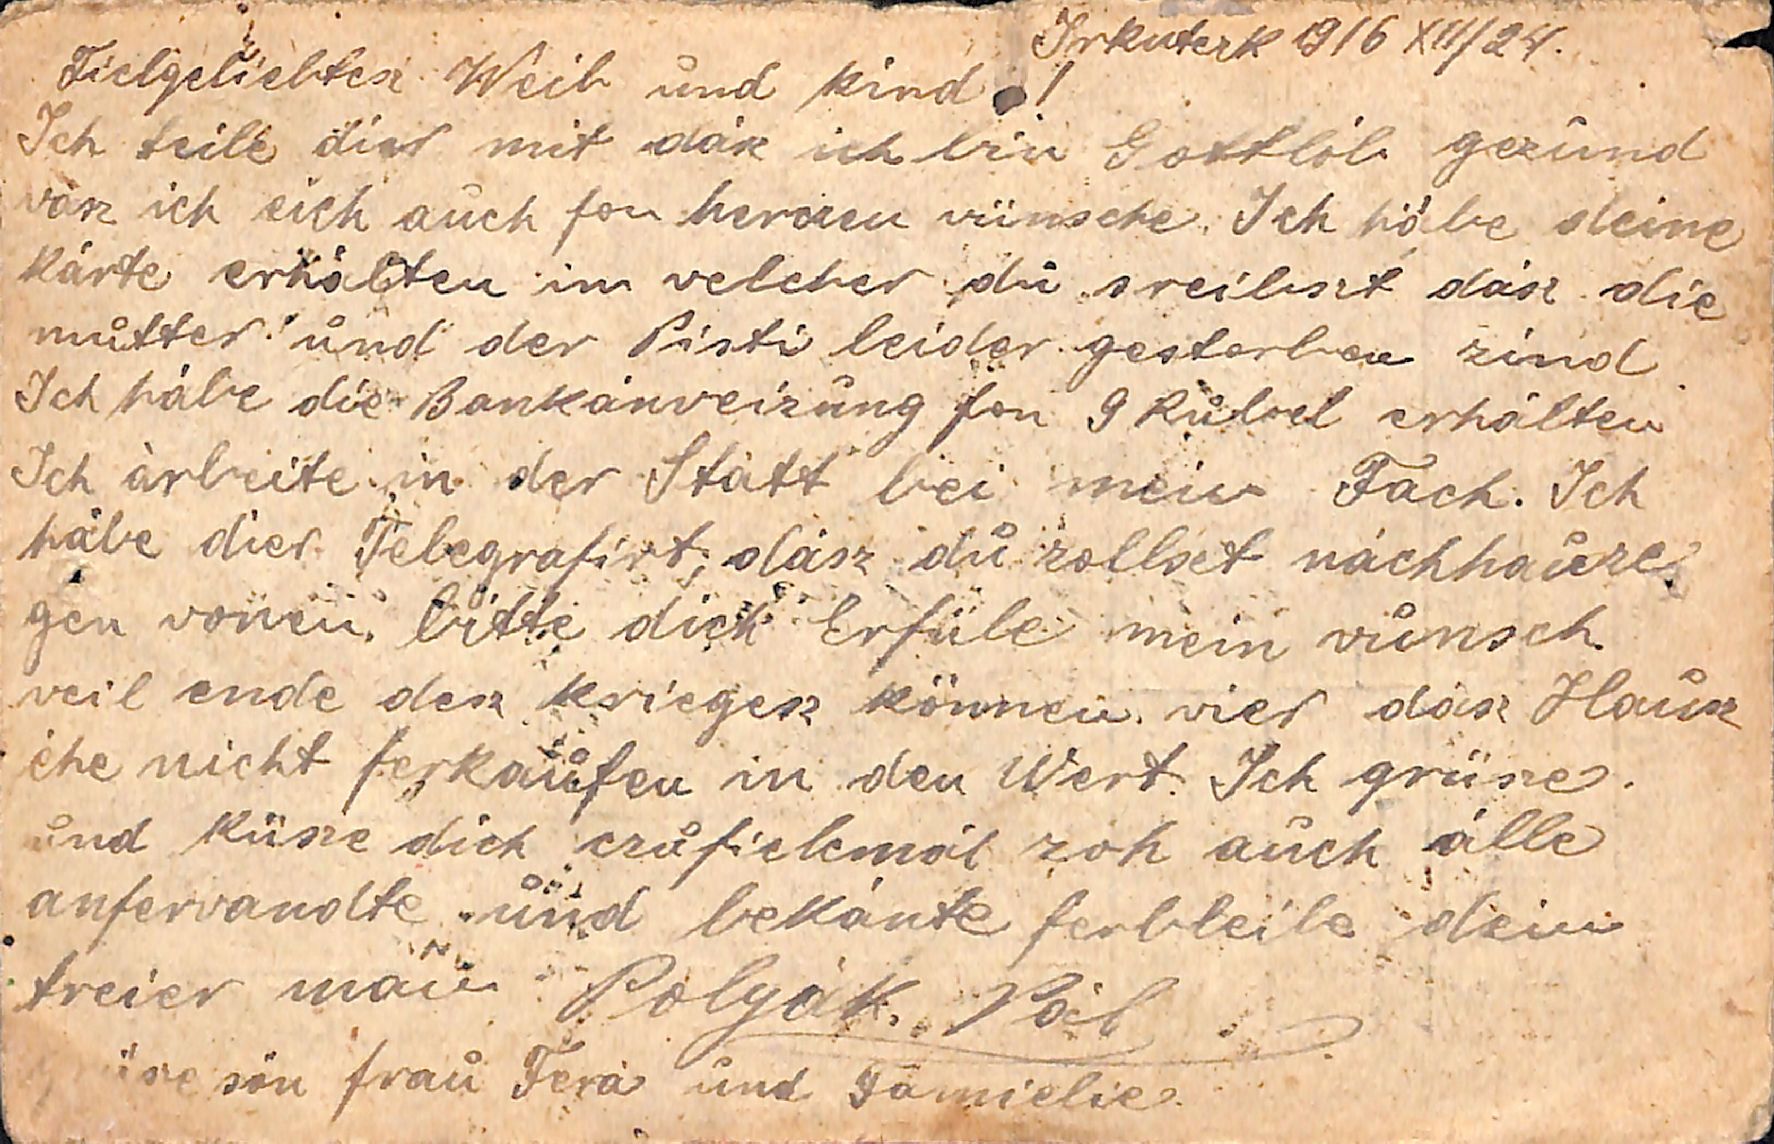 Irkutszk 916 XII/24.
Fielgeliebtesz Weib und kind!
Ich teile dier mit dász ich bin Gottlob gezund
vász ich eich auch fon herczen vünsche. Ich hábe deine
kárte erhálten in velcher du sreibszt dász die
mutter und der Pisti leider gestorben zind
Ich hábe die Bankánveizung fon 9 Rubel erhálten
Ich árbeite in der Státt bei mein Fach. Ich
hábe dier Telegrafirt, dász du zollszt náchhauze
gen vonen. bitte dich Erfüle mein vunsch.
veil ende desz kriegesz können vier dász Hausz
ehe nicht ferkaufen in den Wert. Ich grüsze
und küsze dich czufielemál zoh auch álle
anfervandte und bekánte ferbleibe dein
treier man Polyák Pál
frau Fera und Famielie